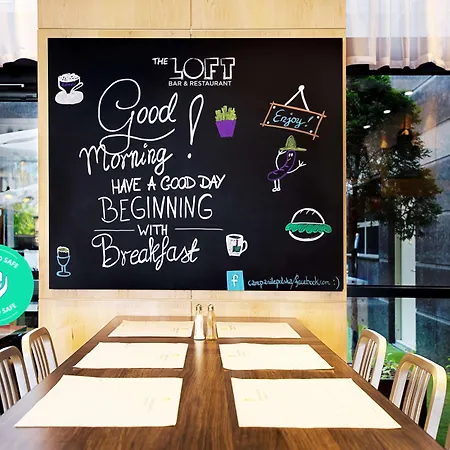 THE LOFT
BAR & RESTAURANT
Good
Morning!
HAVE A GOOD DAY
BEGINNING
WITH
Breakfast
Enjoy!
f
SAFE
SAFE